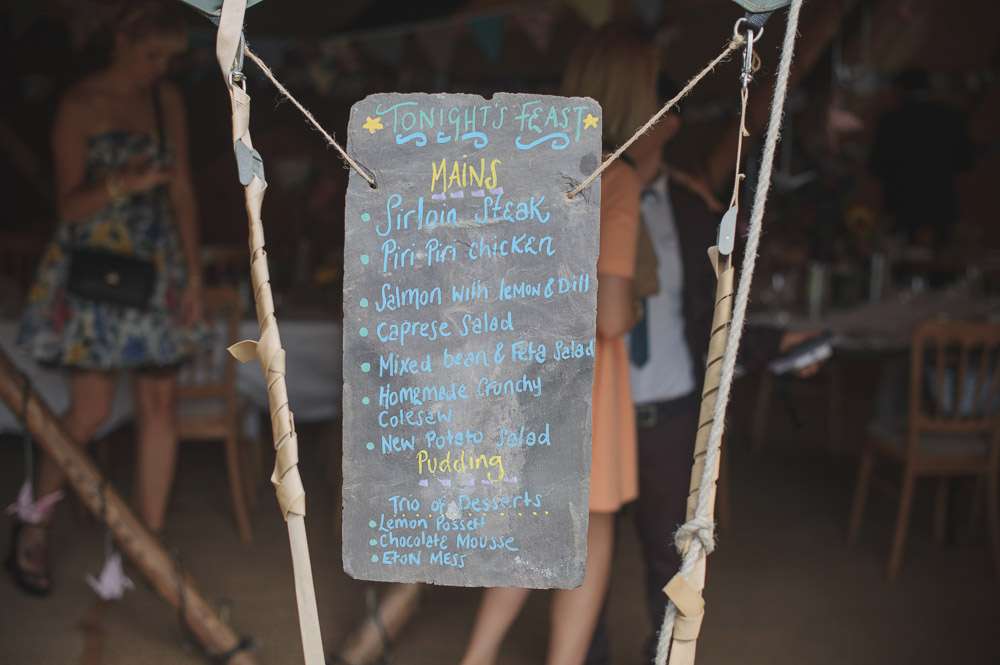 TONIGHT'S FEAST
MAINS
• Sirloin Steak
• Piri Piri chicken
• Salmon with lemon & Dill
• Caprese Salad
• Mixed bean & Feta Salad
• Homemade Crunchy
Coleslaw
• New Potato Salad
Pudding
Trio of Desserts
• Lemon Possett
• Chocolate Mousse
• Eton Mess